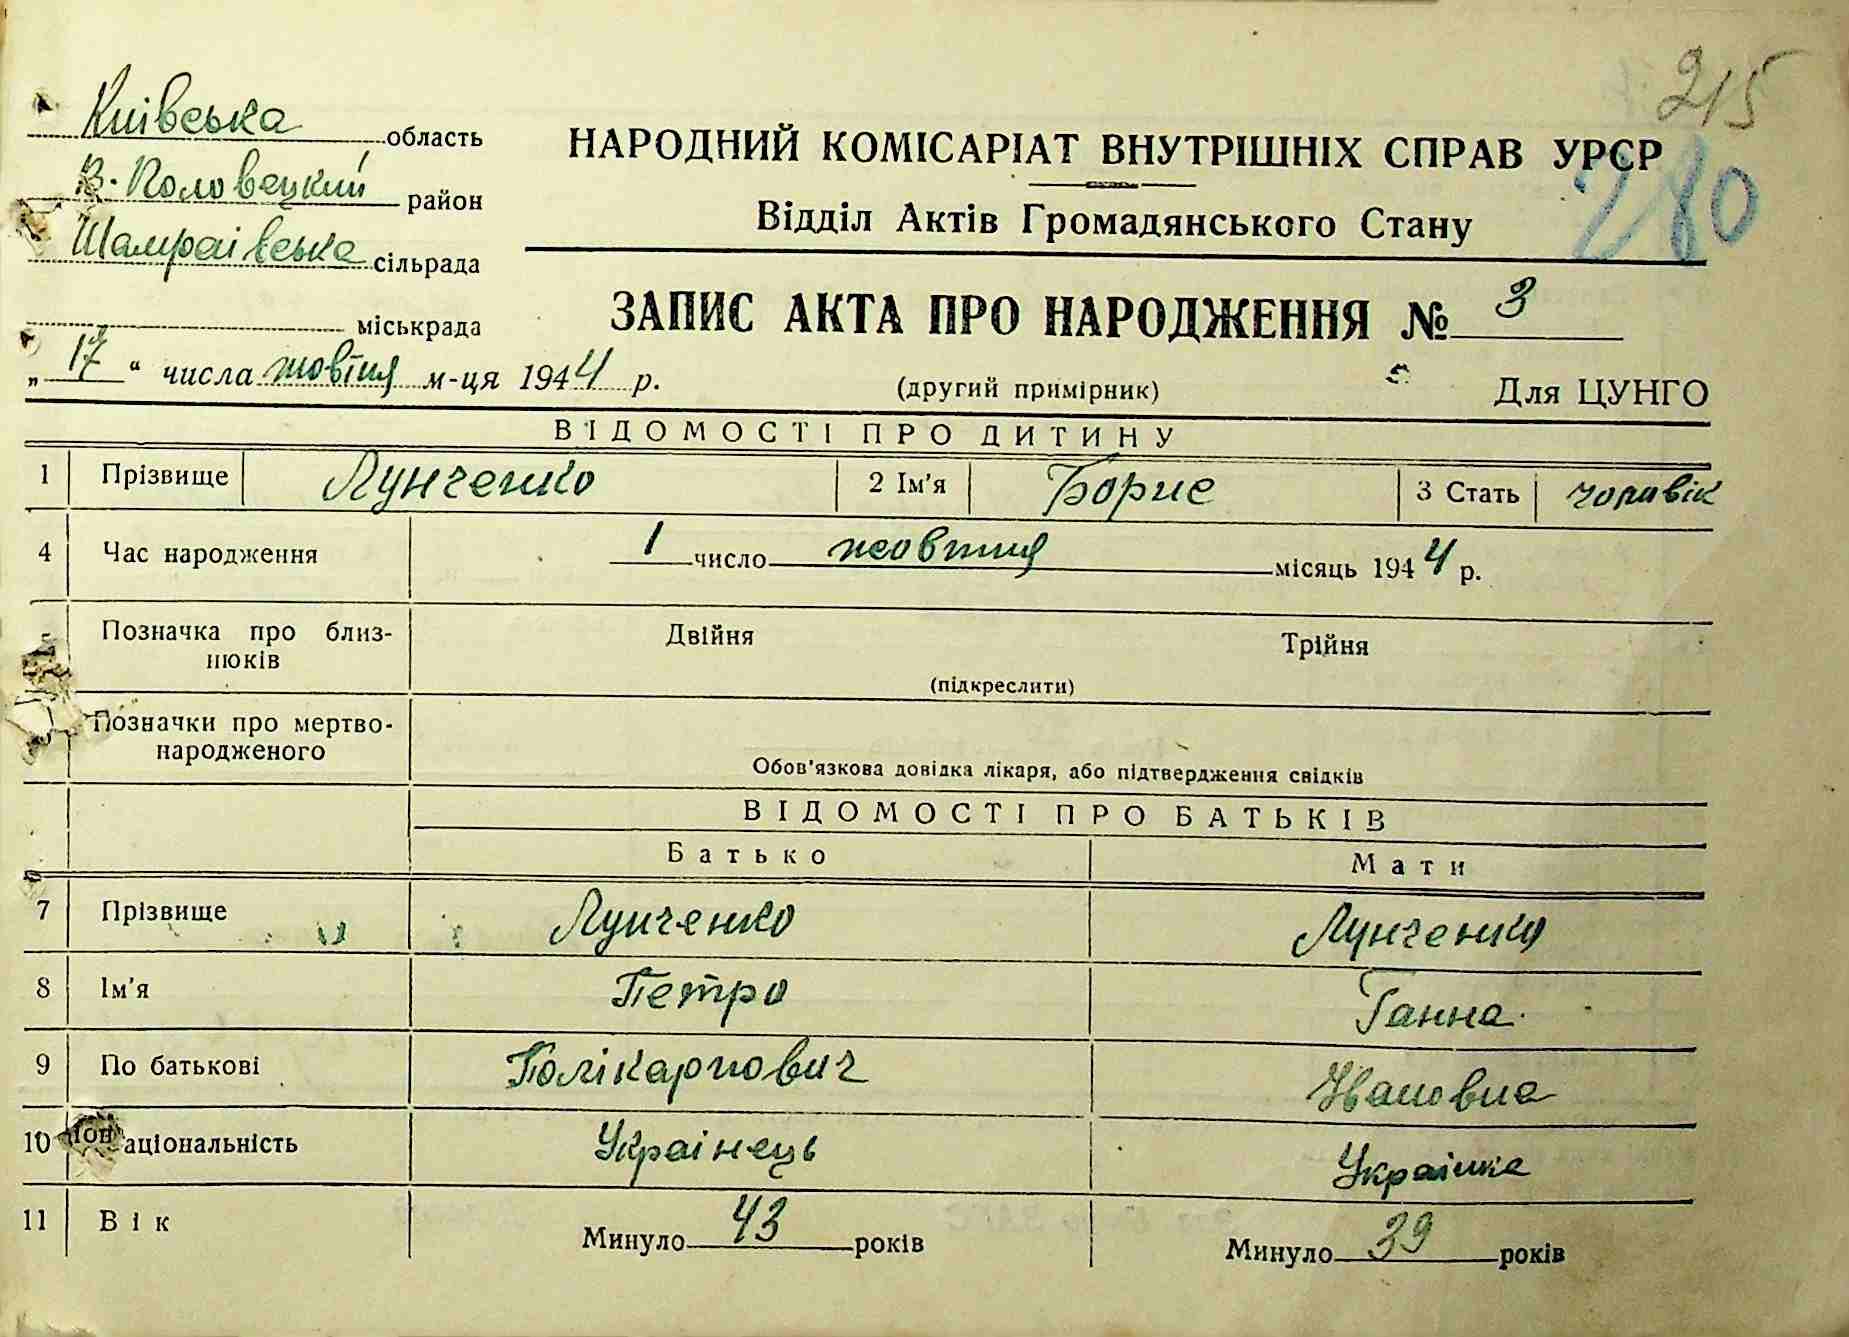 215
Київська область
В-Половецкий район
Шамраївська сільрада
міськрада
НАРОДНИЙ КОМІСАРІАТ ВНУТРІШНІХ СПРАВ УРСР
280
Відділ Актів Громадянського Стану
ЗАПИС АКТА ПРО НАРОДЖЕННЯ № 3
„17“ числа жовтня м-ця 1944 р.
(другий примірник)
Для ЦУНГО
ВІДОМОСТІ ПРО ДИТИНУ
1 Прізвище Лунченко 2 Ім'я Борис 3 Стать чоловік
4 Час народження 1 число жовтня місяць 1944 р.
Позначка про близ- Двійня Трійня
нюків (підкреслити)
Позначки про мертво-
народженого Обов'язкова довідка лікаря, або підтвердження свідків
ВІДОМОСТІ ПРО БАТЬКІВ
Батько Мати
7 Прізвище Лунченко Лунченко
8 Ім'я Петро Ганна
9 По батькові Полікарпович Ивановна
10 аціональність Украінець Украінка
11 Вік Минуло 43 років Минуло 39 років